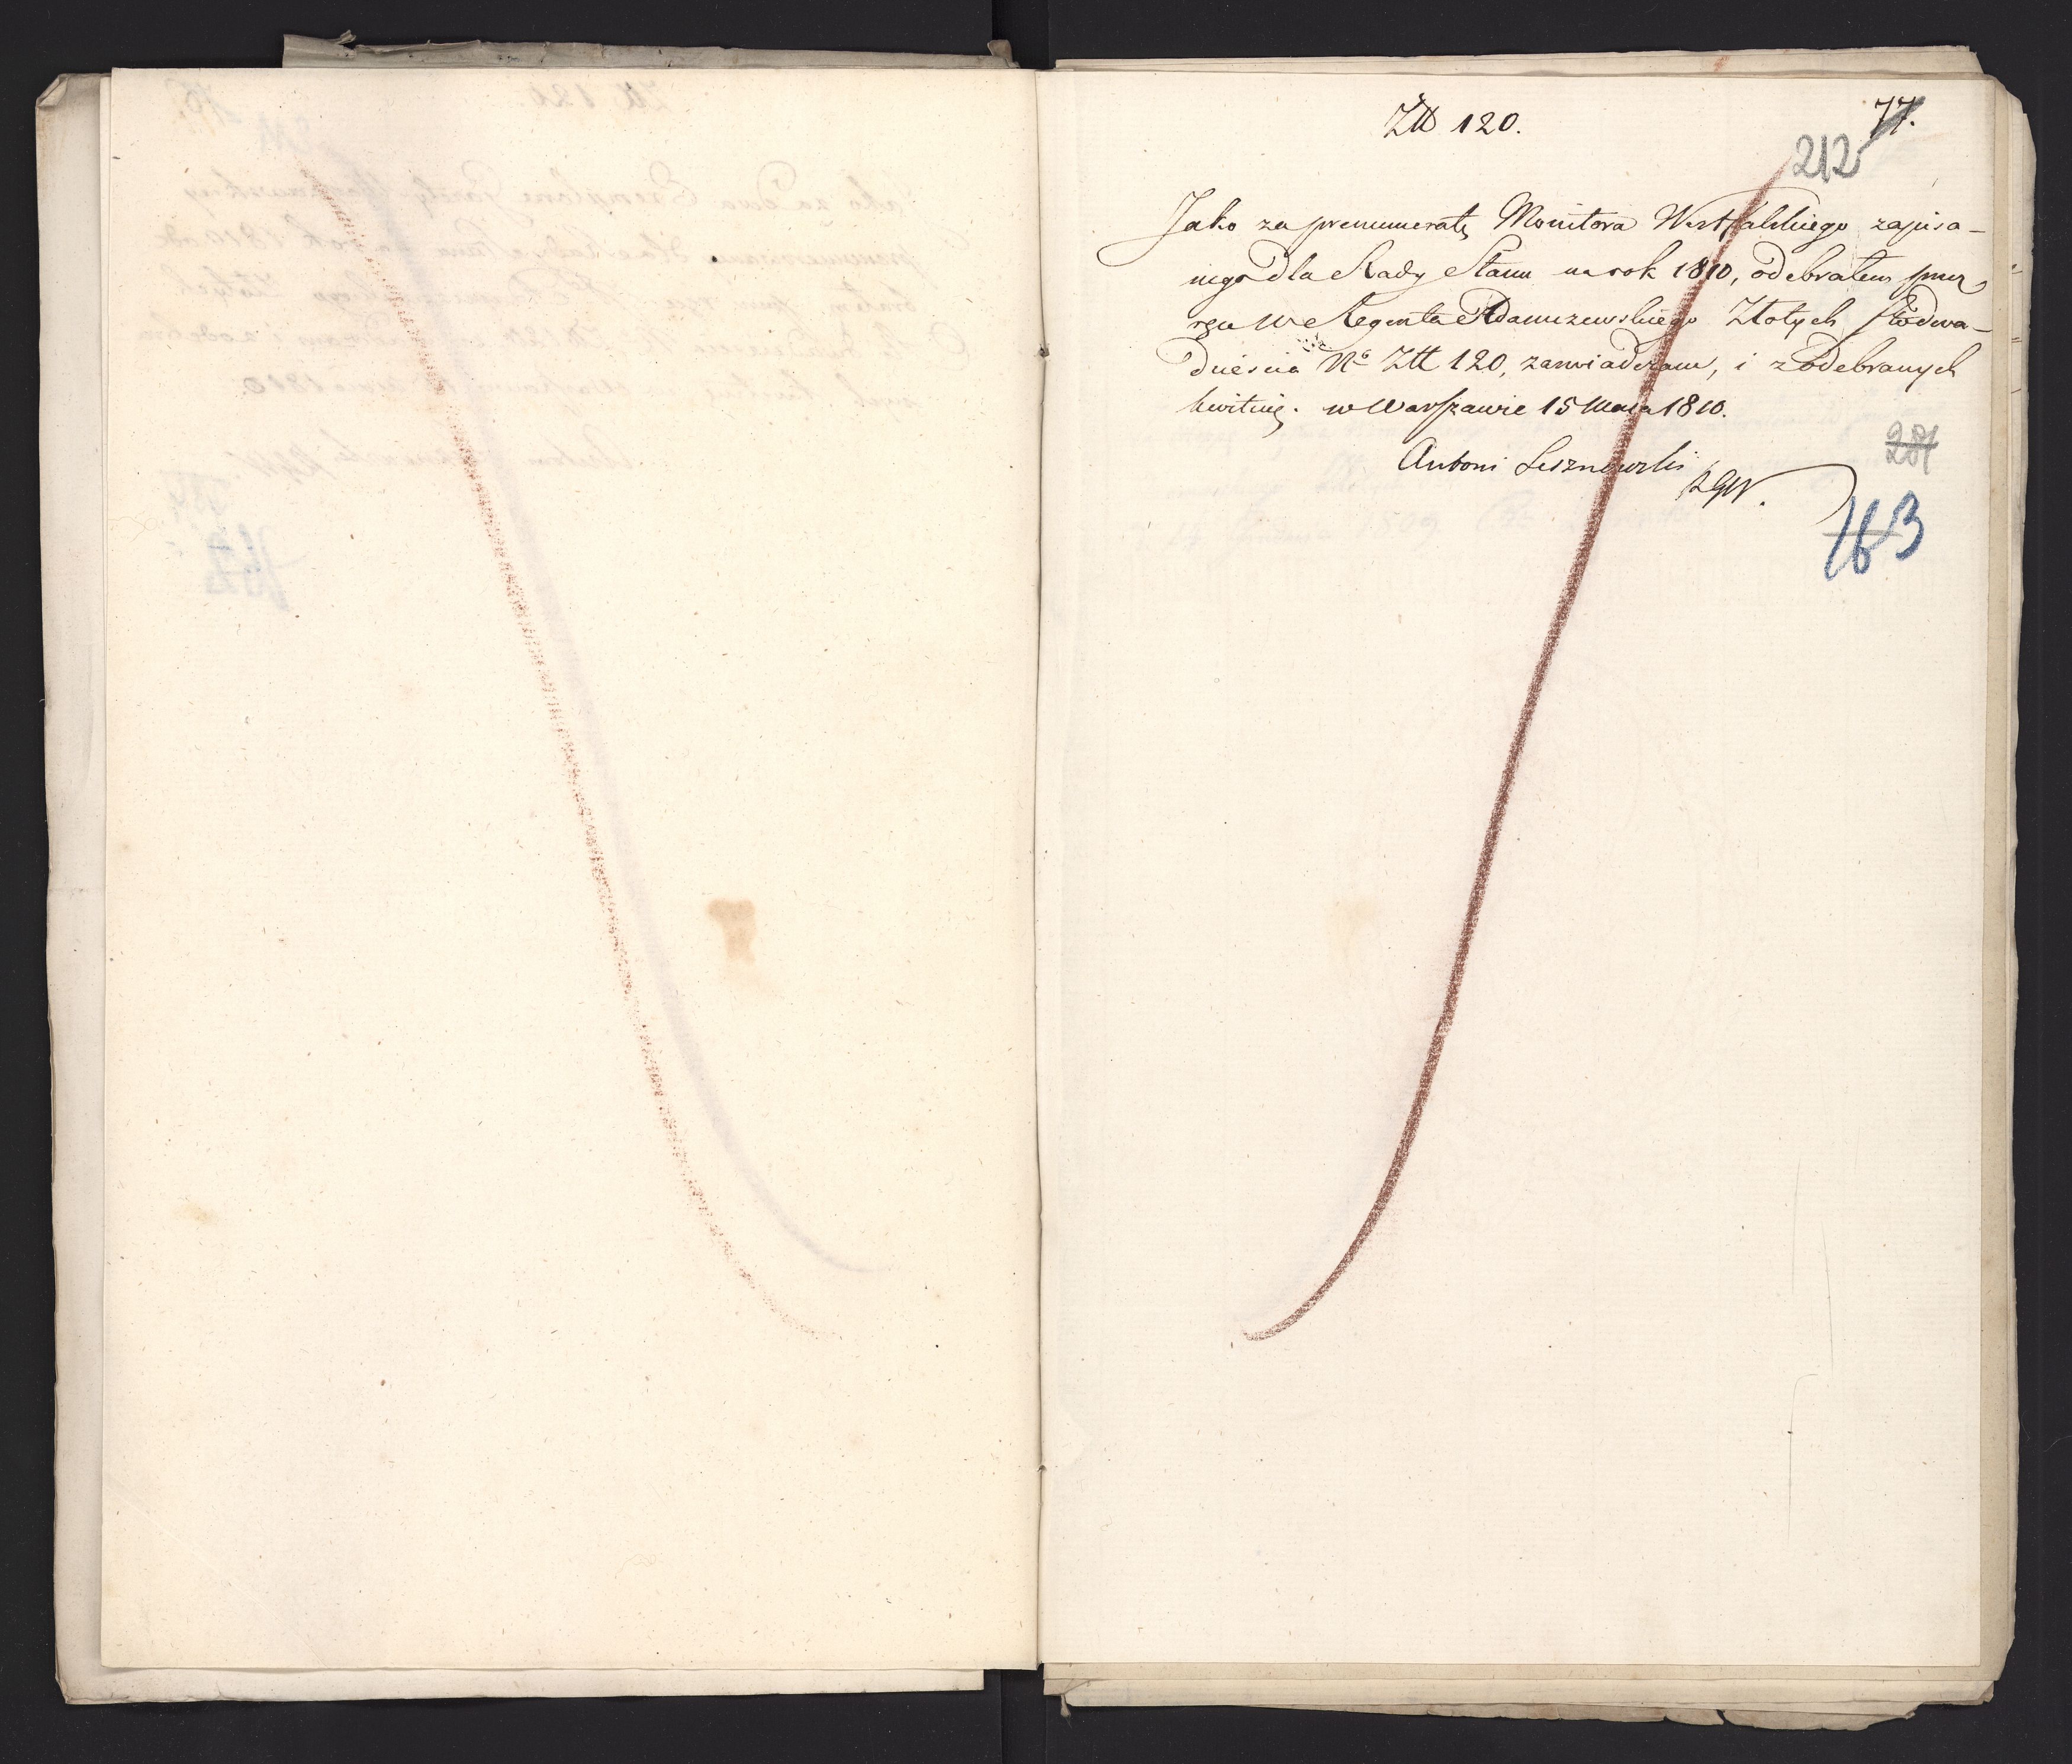 Ztt 120.
77.
212
Jako za prenumeratę Monitora Westfalskiego zapisa-
nego dla Rady Stanu na rok 1810, odebrałem przez
ręce Regenta Adamczewskiego Złotych Stodwa-
dzieścia Nº Ztt 120, zaświadczam, i z odebranych
kwituię. w Warszawie 15 Maia 1810.
Antoni Lesznowski
RGW.
163